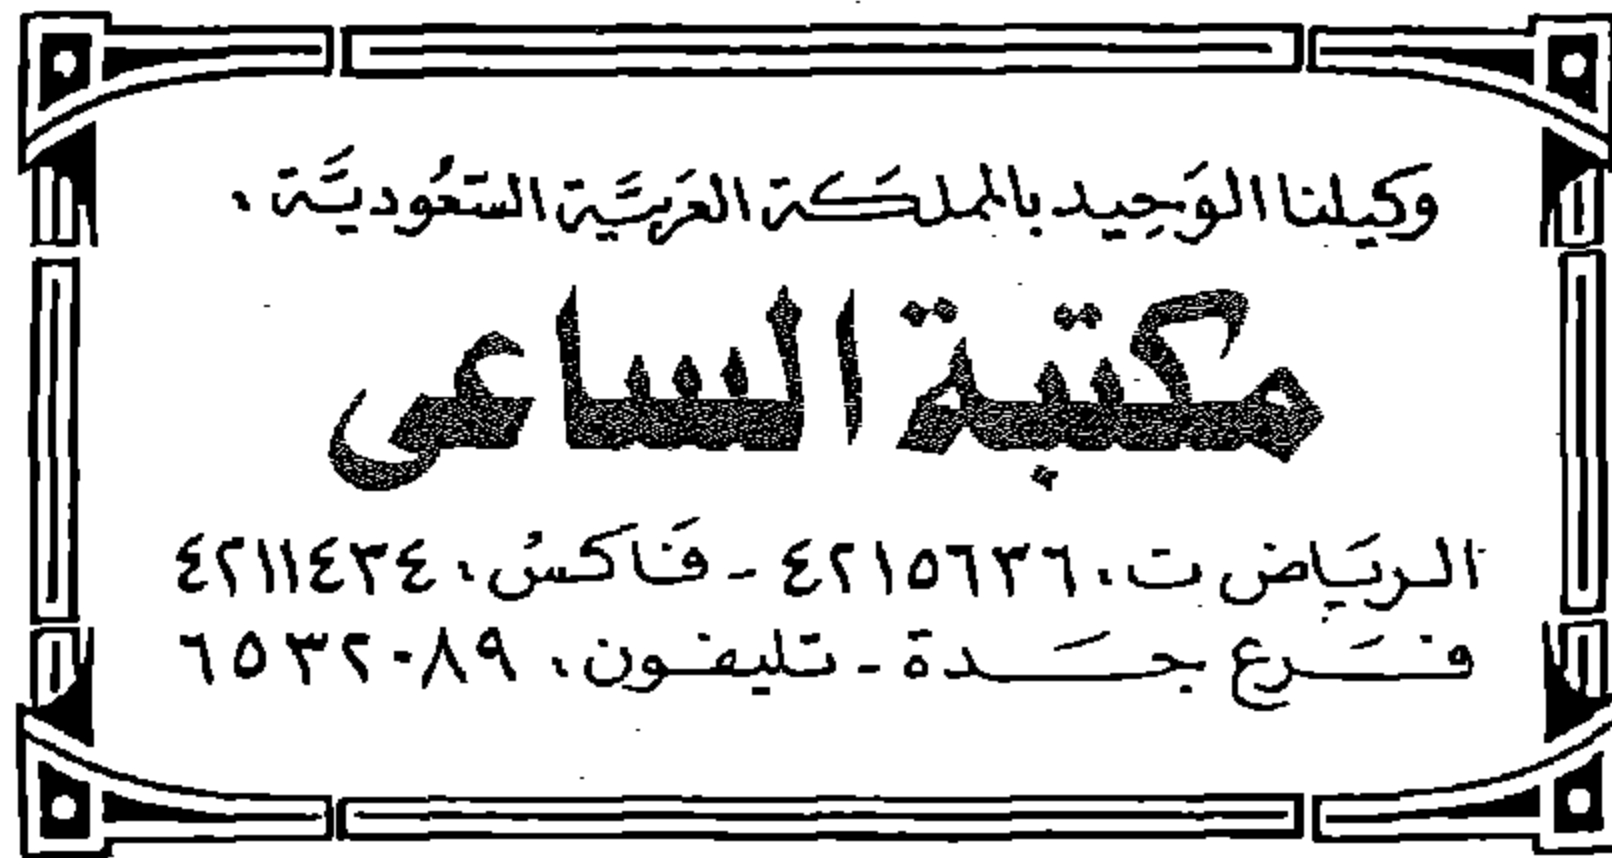 وَكيلنا الوَحِيد بالمملكَة العَربيَّة السّعُوديَّة :
مكتبة الساعى
الريَاض ت : ٤٢١٥٦٣٦ - فَاكسُ : ٤٢١١٤٣٤
فَرع جَدة - تليفون : ٦٥٣٢٠٨٩